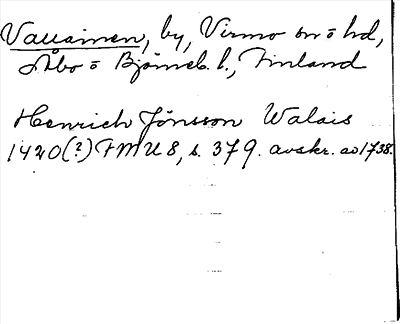 Vallainen, by, Virmo sn o hd,
Åbo o Björneb. l., Finland
Henrich Jönsson Walais
1420(?) FMU 8, s. 379. avskr. ao 1738.